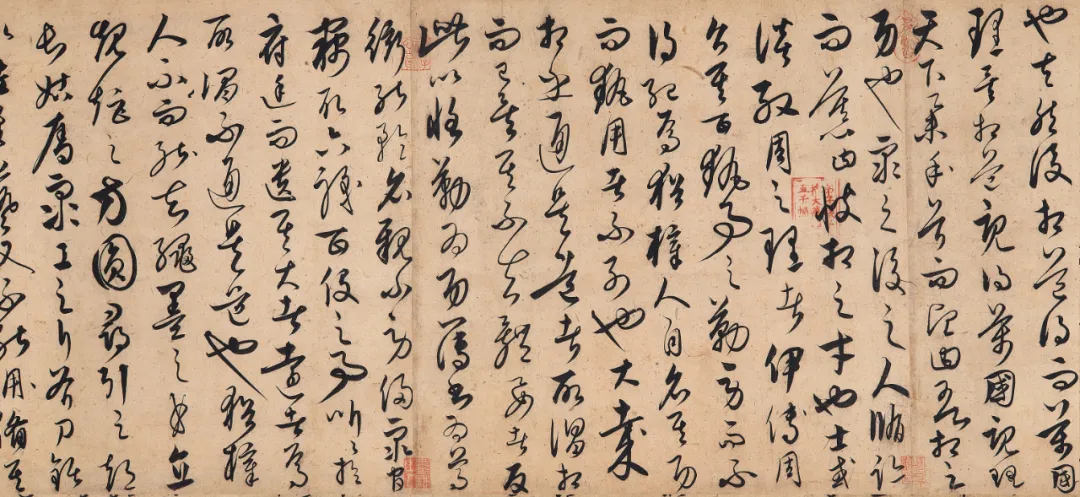 也夫然後相道得而萬國
理矣相道既得萬國既理
天下舉首而望曰吾相之
功也後之人循跡
而慕曰彼相之才也士或
談殷周之理者伊傅周
召其百執事之勤勞而不
得紀焉猶梓人自名其功
而執用者不列也大哉
相乎通是道者所謂相
而已矣其不知體要者反
此以恪勤為功簿書為尊
衒能矜名親小勞侵眾官
竊取六職百役之事听听於
府庭而遺其大者遠者焉
所謂不通是道也猶梓
人而不知繩墨之曲直
規矩之方圓尋引之短
長姑奪眾工之斤斧刀鋸
以佐其藝又不能用備其